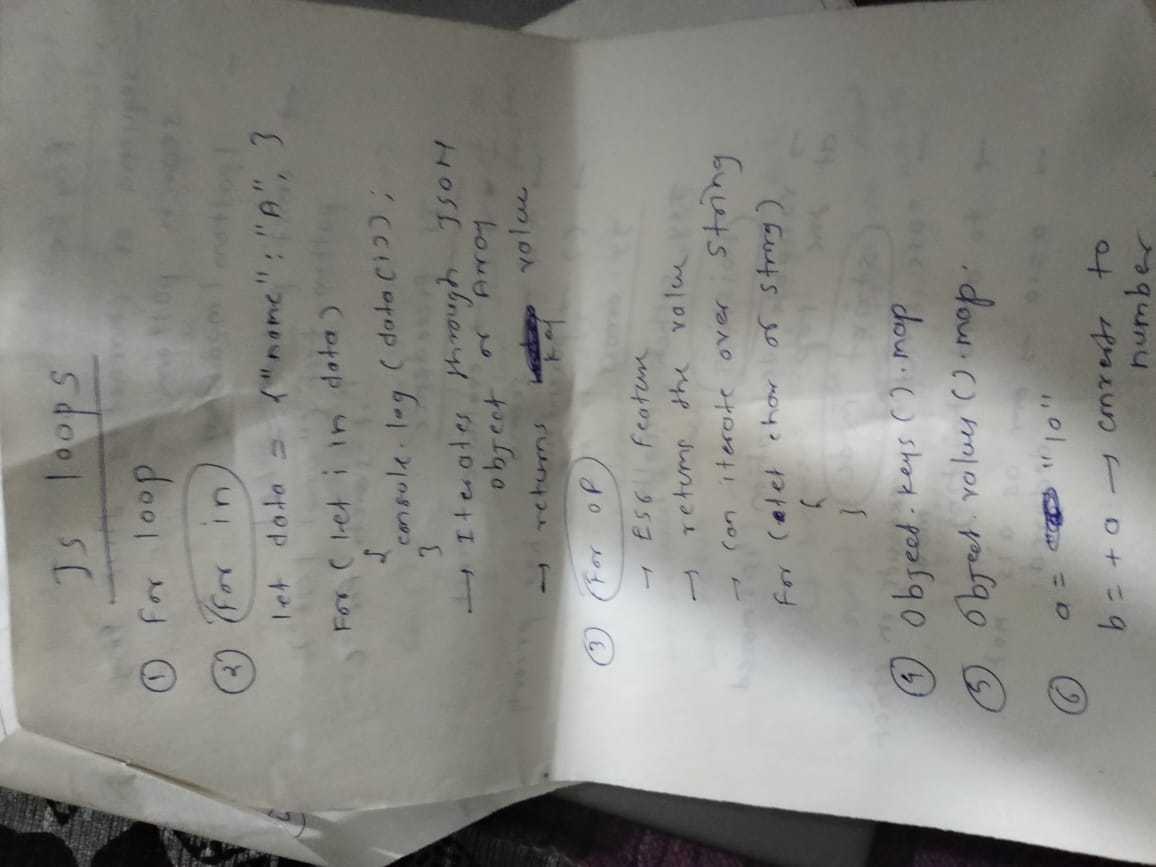 Js loops
① For loop
② For in
let data = {"name": "A", }
For (let i in data)
{
console.log (data(i));
}
→ Iterates through JSON
object or Array
→ returns key value
③ For of
→ ES6 Feature
→ returns the value
→ Can iterate over string
For (let char of string)
{
}
④ Object.keys().map
⑤ Object.values().map.
⑥ a = "10"
b = +a → convert to
number